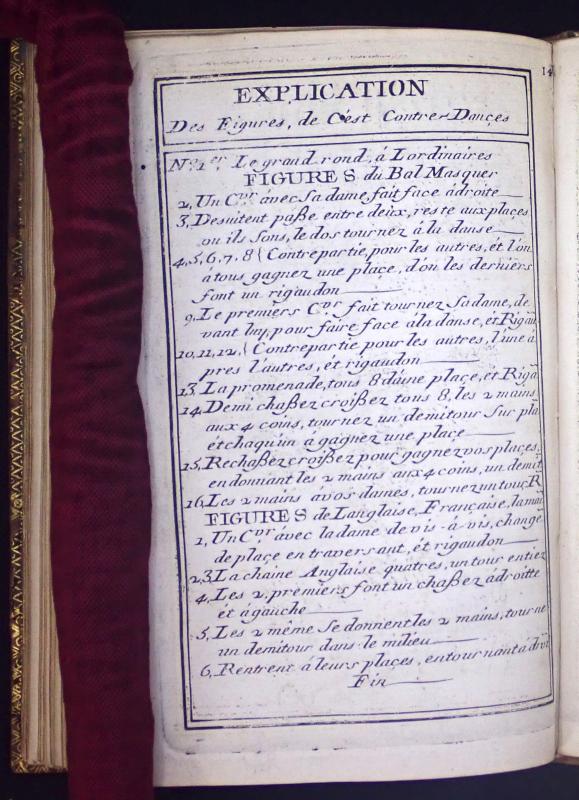 14
EXPLICATION
Des Figures, de C'est Contre-Dançes
N.º 1.er Le grand rond, á Lordinaires
FIGURES du Bal Masquer
2, Un C.vr avec sa dame, fait face ádroite
3, Desuitent paße entre deux, reste aux places
ou ils sons, le dos tournez à la danse
4,5,6,7,8 { Contrepartie, pour les autres, ét l'on
á tous gagnez une place, d'ou les derniers
font un rigaudon
9, Le premiers C.vr fait tournez Sa dame, de
vant luy, pour faire face ála danse, ét Rigau
10,11,12, { Contrepartie pour les autres, l'une a
pres l'autres, ét rigaudon
13, La promenade, tous 8 d'une place, ét Riga
14, Demi chaßez croißez tous 8, les 2 mains
aux 4 coins, tournez un demitour Sur pla
ét chaqu'un a gagnez une place
15, Rechaßez croißez pour gagnez vos places,
en donnant les 2 mains aux 4 coins, un demit
16, Les 2 mains ávos dames, tournez un touc R
FIGURES de Langlaise, Française, la mai
1, Un C.vr ávec la dame de vis-á-vis, change
de place en traversant, ét rigaudon
2,3, La chaine Anglaise quatres, un tour entiez
4, Les 2, premiers font un chaßez ádroitte
ét ágauche
5, Les 2 même Se donnent les 2 mains, tourne
un demitour dans le milieu
6, Rentrent á leurs places, en tournant á droi
Fin